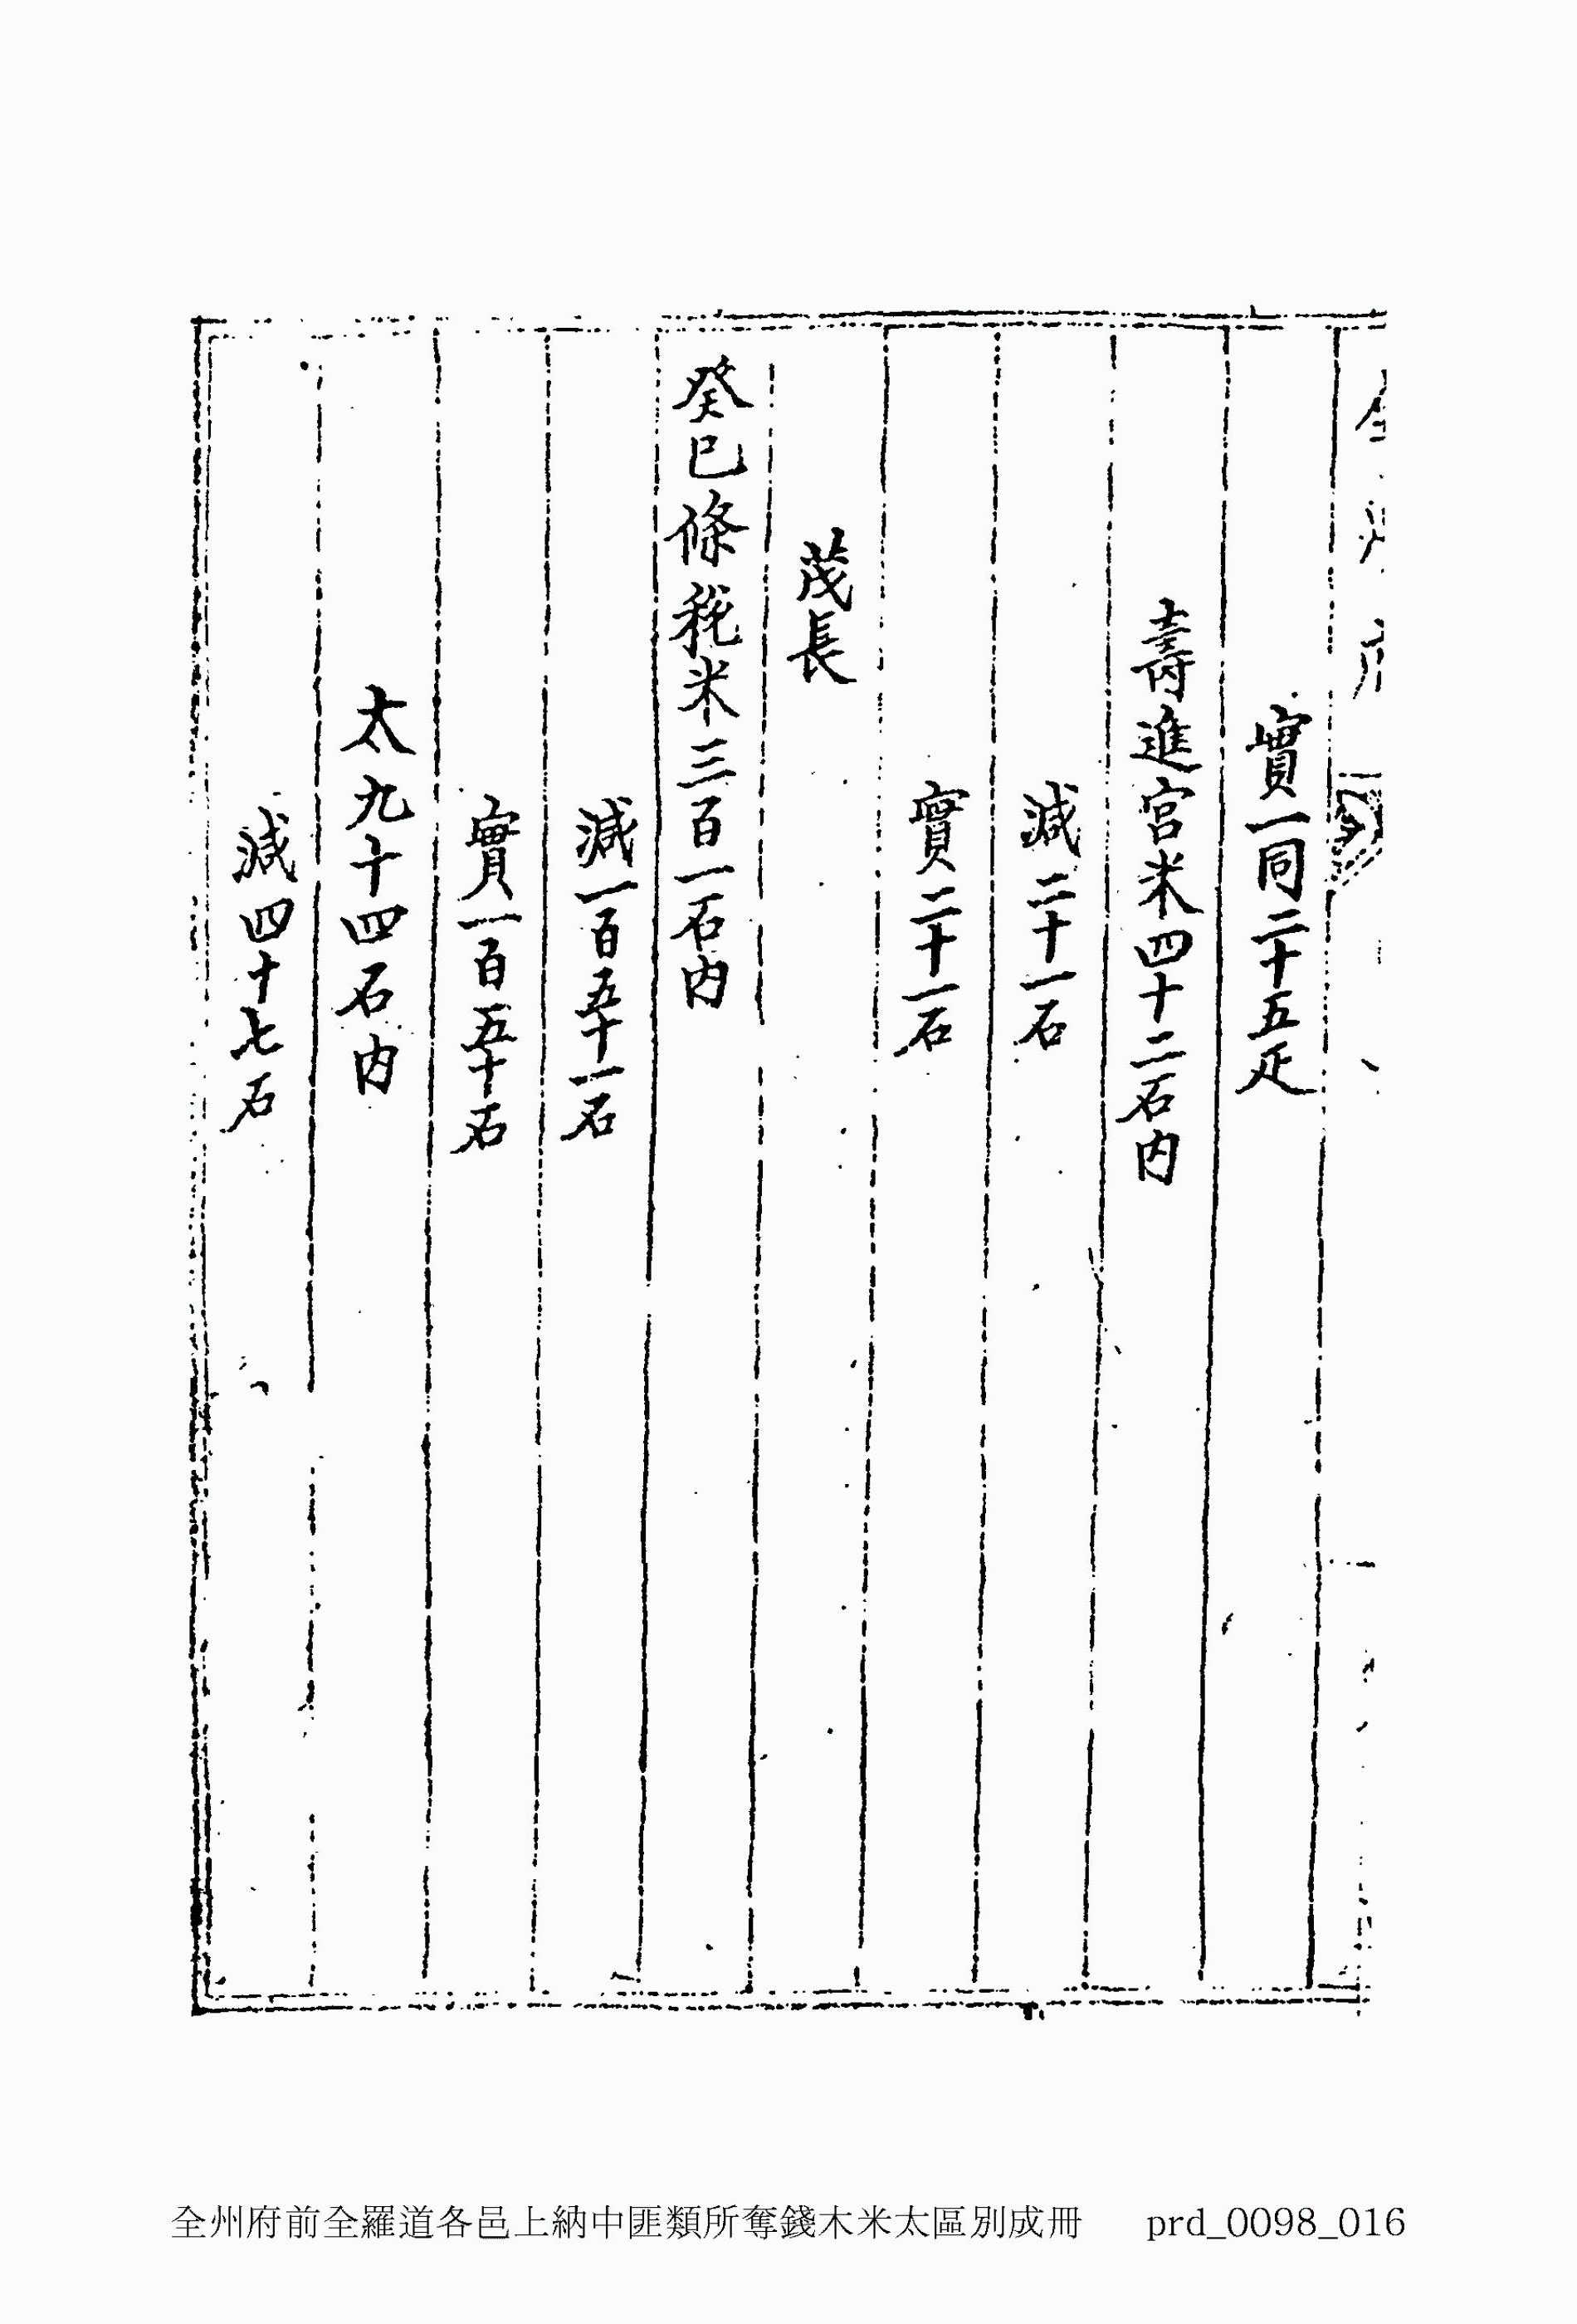 實一同二十五疋
壽進宮米四十二石內
減二十一石
實二十一石
茂長
癸巳條稅米三百一石內
減一百五十一石
實一百五十石
太九十四石內
減四十七石
全州府前全羅道各邑上納中匪類所奪錢木米太區別成冊 prd_0098_016